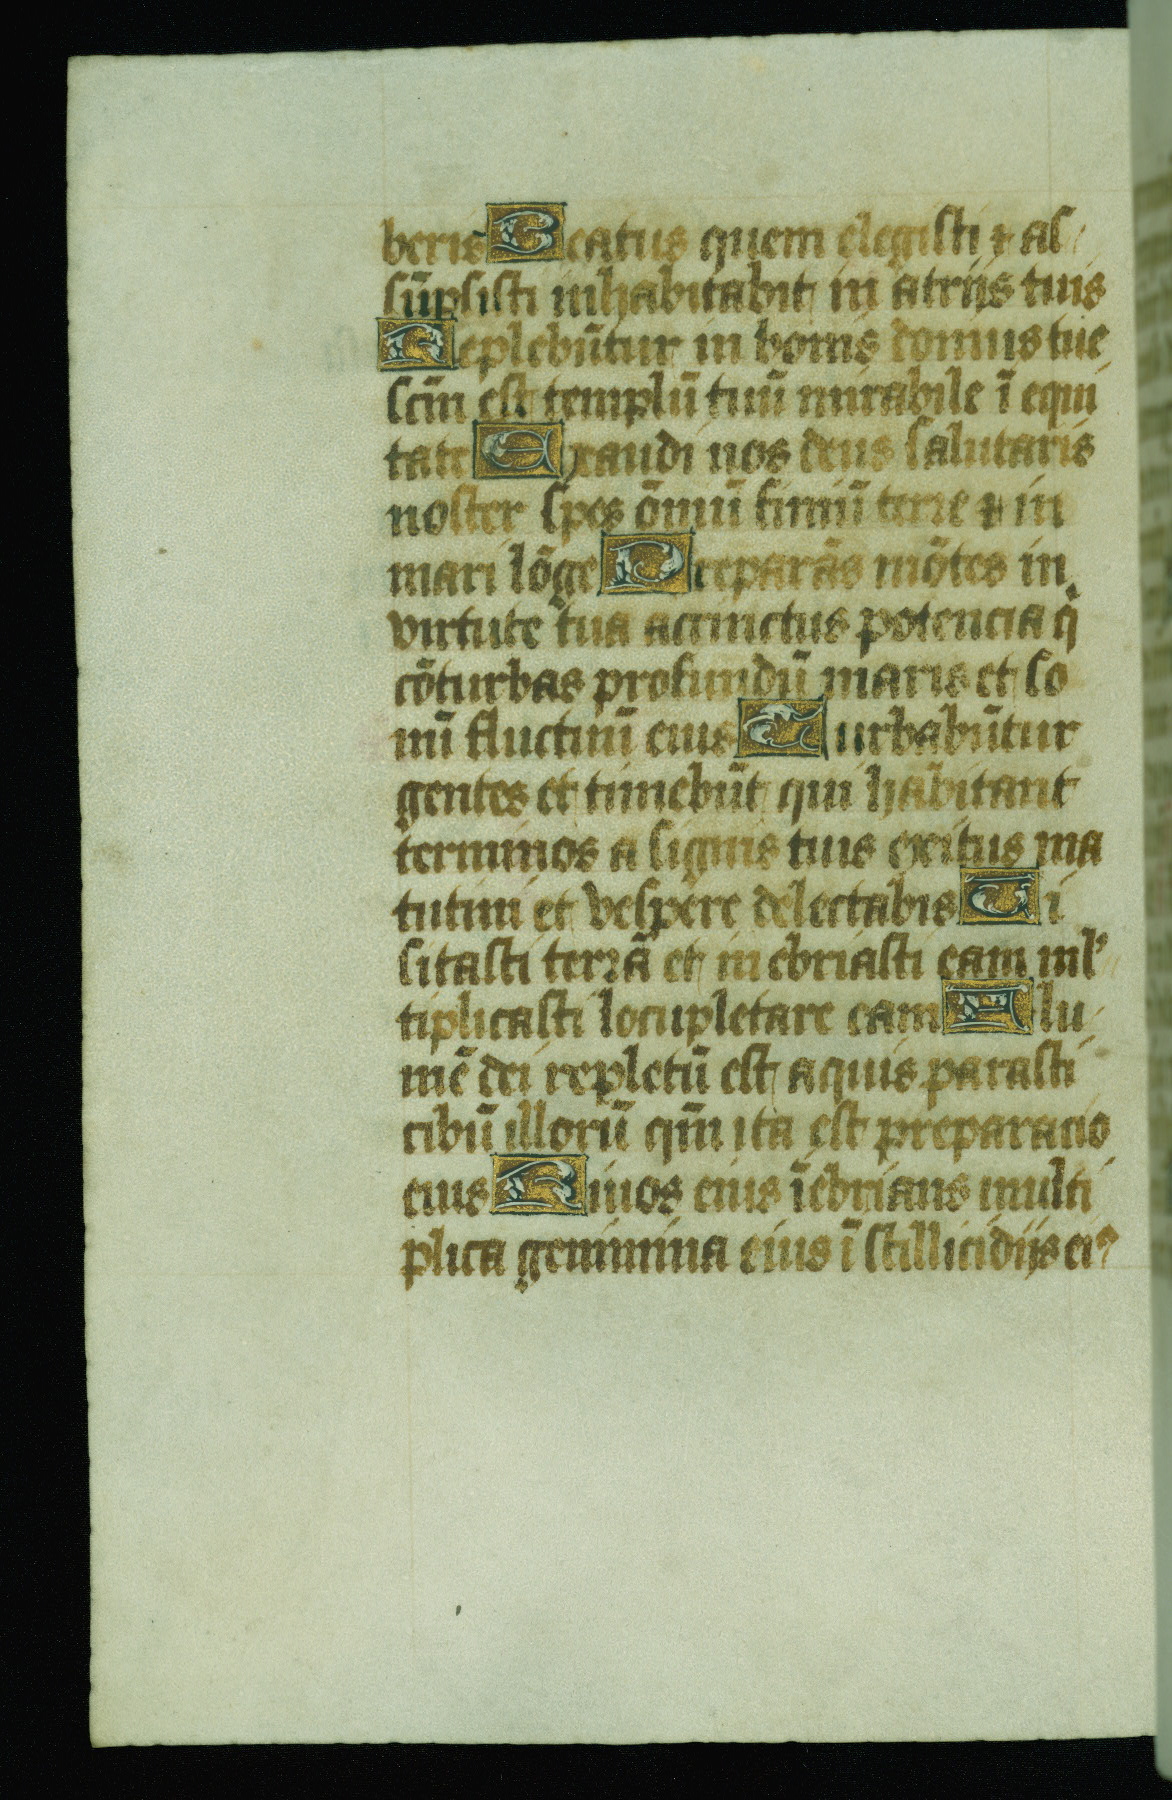 beris Beatus quem elegisti ⁊ as
sũpsisti inhabitabit in atriis tuis
Replebũtur in bonis domus tue
scm̃ est templũ tuũ mirabile ĩ equi
tate Exaudi nos deus salutaris
noster spes õmiũ finiũ terre ⁊ in
mari lõge Preparãs mõtes in
virtute tua accinctus potencia q̃
cõturbas profundũ maris et so
nũ fluctuũ eius Turbabũtur
gentes et timebũt qui habitant
terminos a signis tuis exitus ma
tutini et vespere delectabis Ui
sitasti terrã et inebriasti eam ml'
tiplicasti locupletare eam Flu
mẽ dei repletũ est aquis parasti
cibũ illorũ qm̃ ita est preparacio
eius Riuos eius ĩebrians multi
plica genimina eius ĩ stillicidiis ei⁹